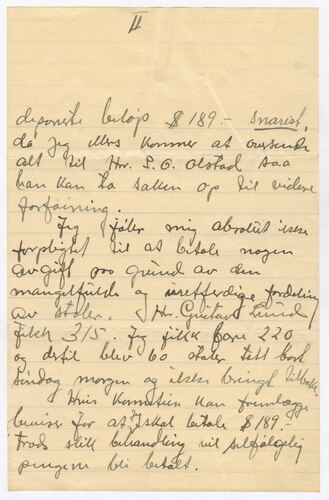 II
deponerte beløp $189.- snarest,
da jeg ellers kommer at oversende
alt til Hr. S. O. Olstad saa
han kan ta saken op til videre
forføining.
Jeg føler mig absolut ikke
forpligtet til at betale nogen
avgift paa grund av den
mangelfulde og urettferdige fordeling
av stoler. Hr. Gustav Lund
fikk 315. Jeg fikk bare 220
og dertil blev 60 stoler tatt bort
Søndag morgen og ikke bringt tilbake.
Hvis Komiteen kan fremlægge
beviser for at jeg skal betale $189.-
trods slik behandling vil selfølgelig
pengene bli betalt.